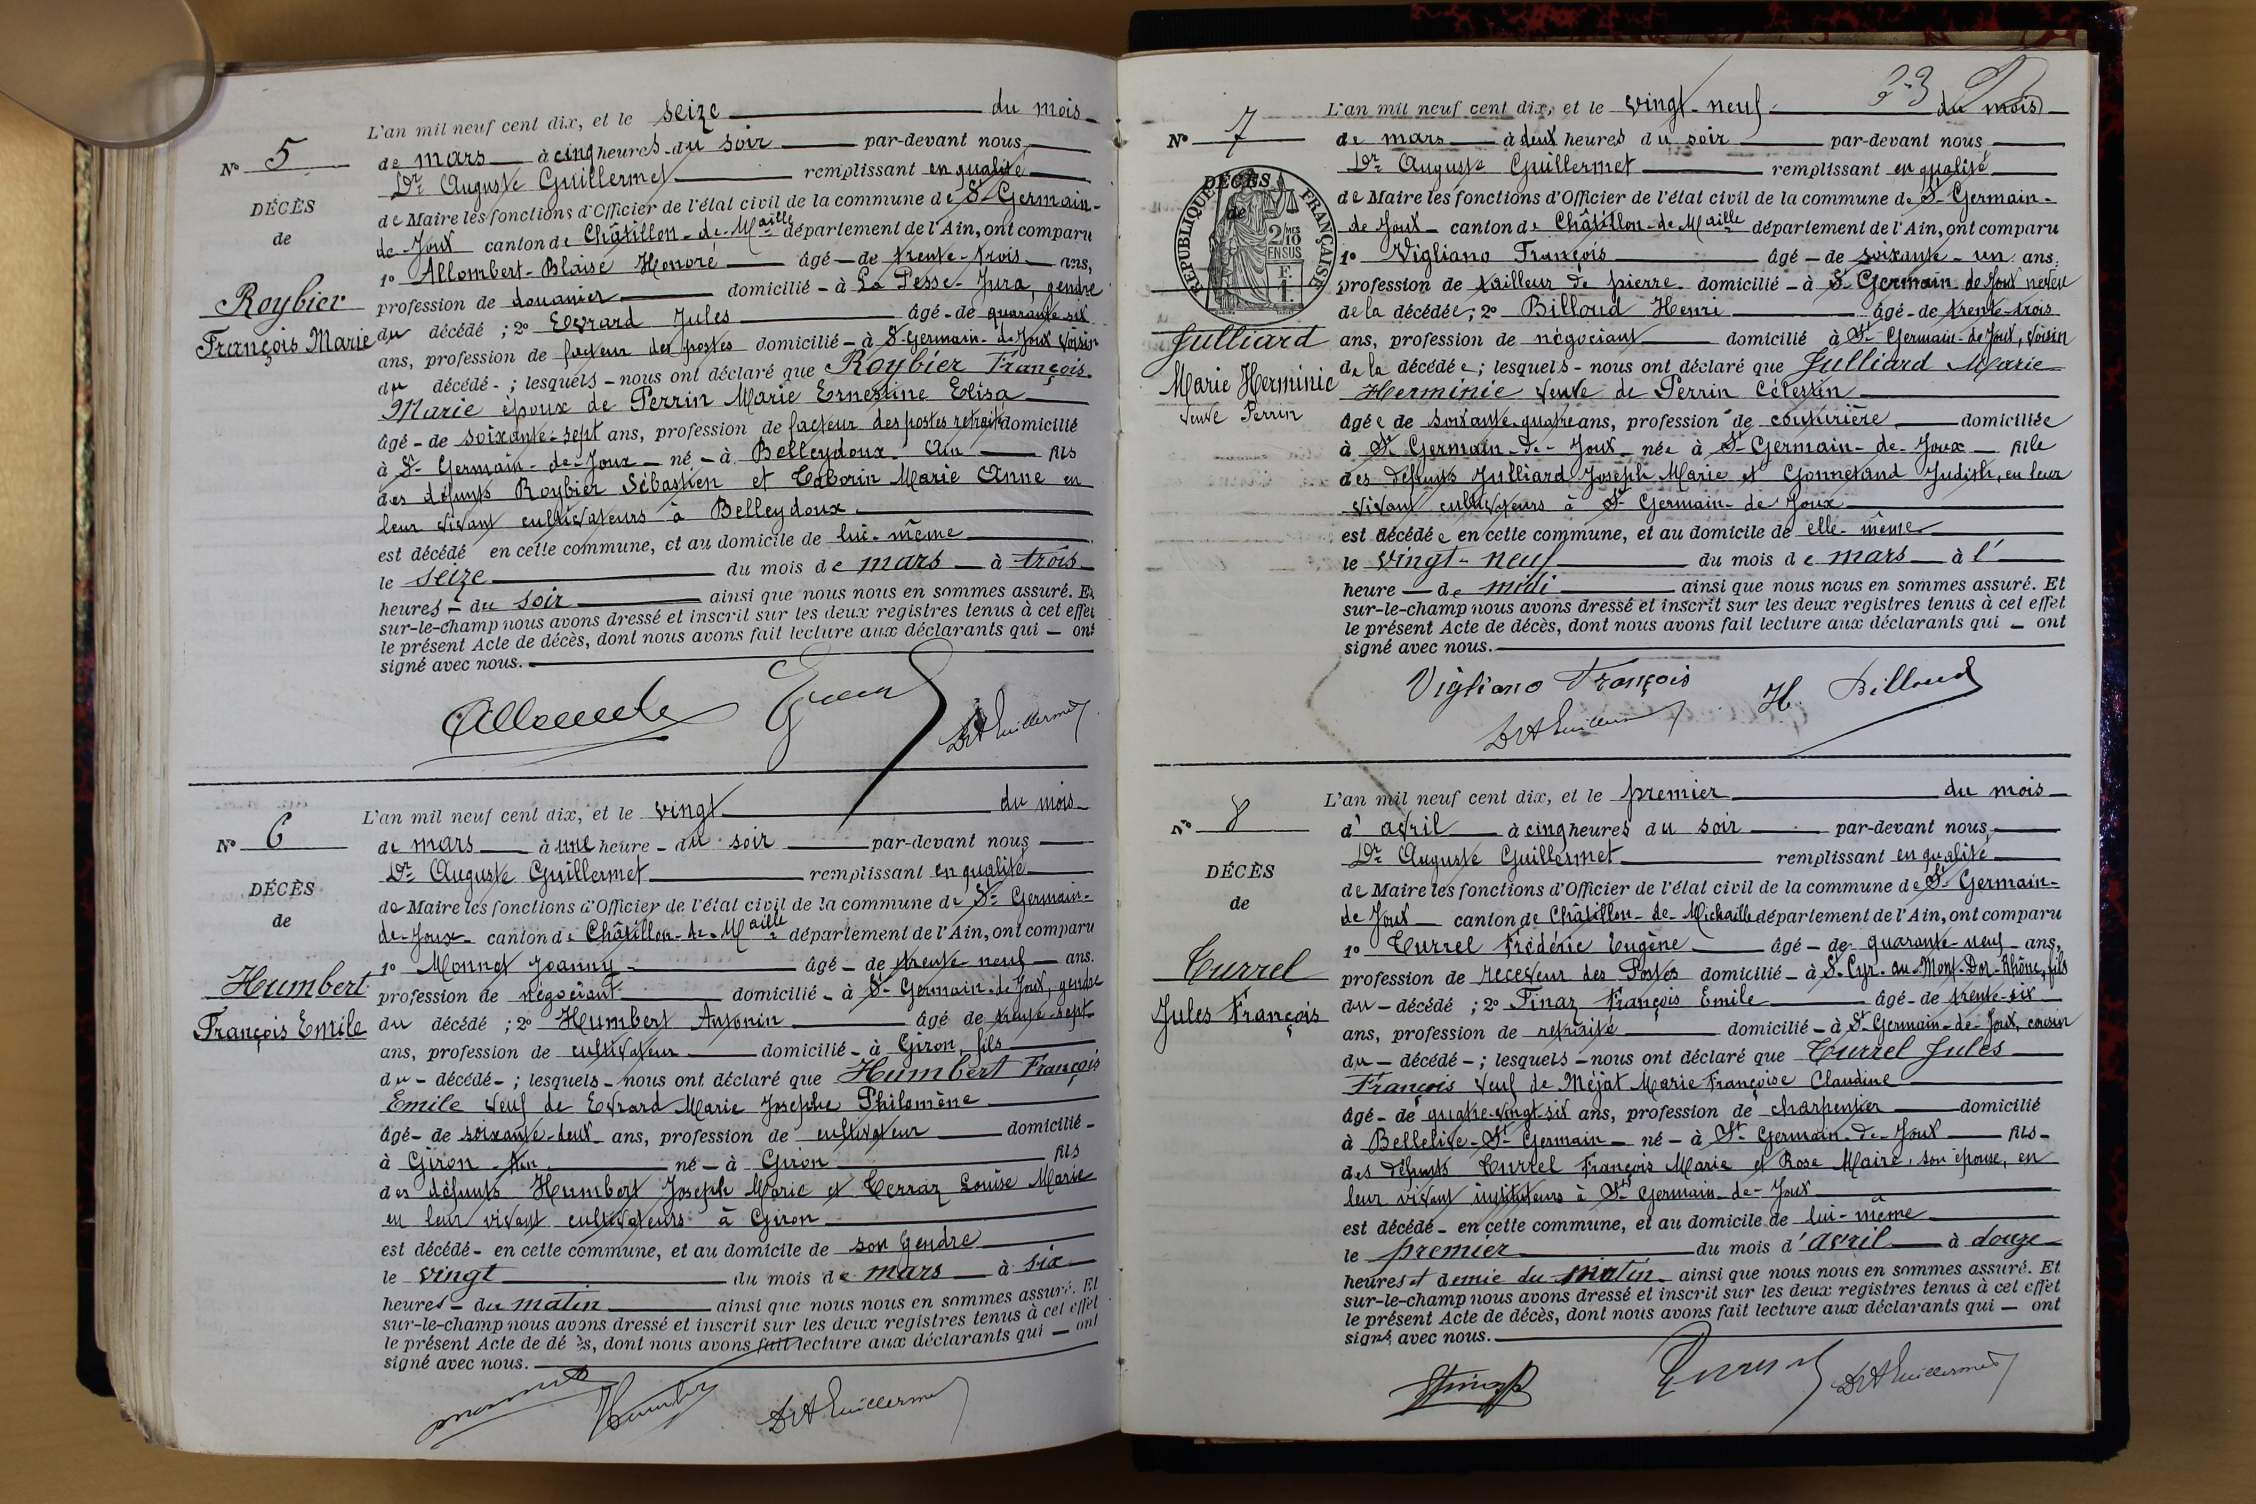 L'an mil neuf cent dix, et le seize du mois
No 5
de mars à cinq heures du soir par-devant nous
Dr Auguste Guillermet remplissant en qualité
DÉCÈS
de Maire les fonctions d'Officier de l'état civil de la commune de St Germain-
de
de-Joux canton de Châtillon-de-Maille département de l'Ain, ont comparu
1o Allombert-Blaise Honoré âgé de trente-trois ans,
Roybier
profession de douanier domicilié à La Pesse-Jura, gendre
François Marie
du décédé ; 2o Evrard Jules âgé de quarante six
ans, profession de facteur des postes domicilié à St Germain-de-Joux voisin
du décédé ; lesquels nous ont déclaré que Roybier François
Marie époux de Perrin Marie Ernestine Elisa
âgé de soixante-sept ans, profession de facteur des postes retraité domicilié
à St Germain-de-Joux né à Belleydoux Ain fils
des défunts Roybier Sébastien et Taborin Marie Anne en
leur vivant cultivateurs à Belleydoux
est décédé en cette commune, et au domicile de lui-même
le seize du mois de mars à trois
heures du soir ainsi que nous nous en sommes assuré. Et
sur-le-champ nous avons dressé et inscrit sur les deux registres tenus à cet effet
le présent Acte de décès, dont nous avons fait lecture aux déclarants qui ont
signé avec nous.
Dr A Guillermet
L'an mil neuf cent dix, et le vingt du mois
No 6
de mars à une heure du soir par-devant nous
Dr Auguste Guillermet remplissant en qualité
DÉCÈS
de Maire les fonctions d'Officier de l'état civil de la commune de St Germain-
de
de-Joux canton de Châtillon-de-Maille département de l'Ain, ont comparu
1o Monnet Joanny âgé de trente-neuf ans.
Humbert
profession de négociant domicilié à St Germain-de-Joux, gendre
François Emile
du décédé ; 2o Humbert Antonin âgé de trente-sept
ans, profession de cultivateur domicilié à Giron, fils
du décédé ; lesquels nous ont déclaré que Humbert François
Emile veuf de Evrard Marie Josephe Philomène
âgé de soixante-deux ans, profession de cultivateur domicilié
à Giron Ain né à Giron fils
des défunts Humbert Joseph Marie et Terraz Louise Marie
en leur vivant cultivateurs à Giron
est décédé en cette commune, et au domicile de son gendre
le vingt du mois de mars à six
heures du matin ainsi que nous nous en sommes assuré. Et
sur-le-champ nous avons dressé et inscrit sur les deux registres tenus à cet effet
le présent Acte de décès, dont nous avons fait lecture aux déclarants qui ont
signé avec nous.
Monnet Humbert Dr A Guillermet
L'an mil neuf cent dix, et le vingt-neuf du mois
No 7
de mars à deux heures du soir par-devant nous
Dr Auguste Guillermet remplissant en qualité
DÉCÈS
de Maire les fonctions d'Officier de l'état civil de la commune de St Germain-
de
RÉPUBLIQUE FRANÇAISE
2/10 MES
EN SUS
F.
1.
de Joux canton de Châtillon-de-Maille département de l'Ain, ont comparu
1o Vigliano François âgé de soixante-un ans.
profession de tailleur de pierre domicilié à St Germain de Joux neveu
de la décédée ; 2o Billoud Henri âgé de trente-trois
Julliard
ans, profession de négociant domicilié à St Germain-de-Joux, voisin
Marie Herminie
de la décédée ; lesquels nous ont déclaré que Julliard Marie
Veuve Perrin
Herminie veuve de Perrin Célestin
âgée de soixante-quatre ans, profession de couturière domiciliée
à St Germain-de-Joux née à St Germain-de-Joux fille
des défunts Julliard Joseph Marie et Gonnetand Judith, en leur
vivant cultivateurs à St Germain-de Joux
est décédée en cette commune, et au domicile de elle-même
le vingt-neuf du mois de mars à l'
heure de midi ainsi que nous nous en sommes assuré. Et
sur-le-champ nous avons dressé et inscrit sur les deux registres tenus à cet effet
le présent Acte de décès, dont nous avons fait lecture aux déclarants qui ont
signé avec nous.
Vigliano François H. Billoud
Dr A Guillermet
L'an mil neuf cent dix, et le premier du mois
No 8
d'avril à cinq heures du soir par-devant nous
Dr Auguste Guillermet remplissant en qualité
DÉCÈS
de Maire les fonctions d'Officier de l'état civil de la commune de St Germain-
de
de Joux canton de Châtillon-de-Michaille département de l'Ain, ont comparu
1o Turrel Frédéric Eugène âgé de quarante-neuf ans,
Turrel
profession de receveur des Postes domicilié à St Cyr-au-Mont-Dor-Rhône, fils
du décédé ; 2o Finaz François Emile âgé de trente-six
Jules François
ans, profession de retraité domicilié à St Germain-de-Joux, cousin
du décédé ; lesquels nous ont déclaré que Turrel Jules
François veuf de Méjat Marie Françoise Claudine
âgé de quatre-vingt-six ans, profession de charpentier domicilié
à Bellelive-St Germain né à St Germain-de-Joux fils
des défunts Turrel François Marie et Rose Maire, son épouse, en
leur vivant instituteurs à St Germain-de-Joux
est décédé en cette commune, et au domicile de lui-même
le premier du mois d'avril à douze
heures et demie du matin ainsi que nous nous en sommes assuré. Et
sur-le-champ nous avons dressé et inscrit sur les deux registres tenus à cet effet
le présent Acte de décès, dont nous avons fait lecture aux déclarants qui ont
signé avec nous.
Finaz Turrel Dr A Guillermet